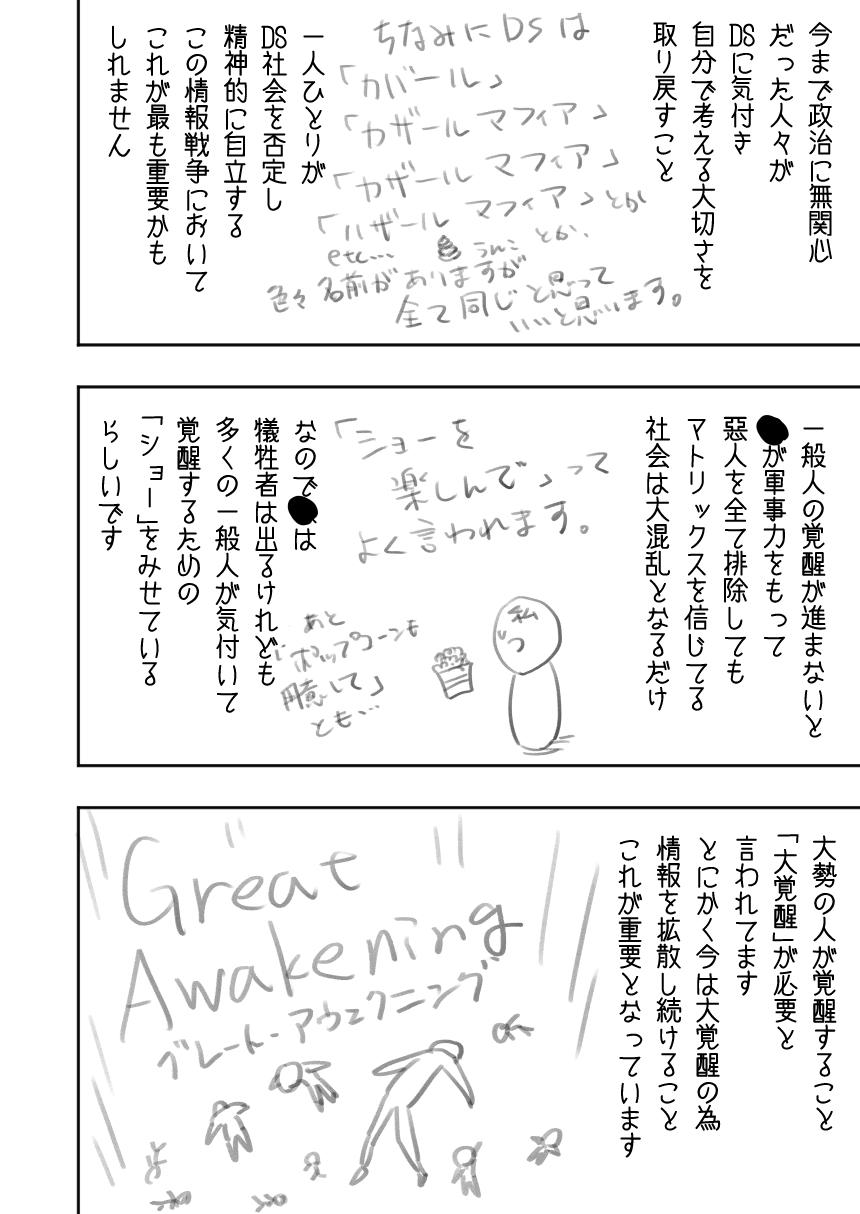 今まで政治に無関心
だった人々が
DSに気付き
自分で考える大切さを
取り戻すこと
ちなみにDSは
「カバール」
「カザールマフィア」
「カザールマフィア」
「ハザールマフィア」とか
etc... うんことか、
色々名前がありますが
全て同じと思って
いいと思います。
一人ひとりが
DS社会を否定し
精神的に自立する
この情報戦争において
これが最も重要かも
しれません
一般人の覚醒が進まないと
が軍事力をもって
悪人を全て排除しても
マトリックスを信じてる
社会は大混乱となるだけ
「ショーを
楽しんで」って
よく言われます。
私
あと
「ポップコーンも
用意して」
とも…
なので は
犠牲者は出るけれども
多くの一般人が気付いて
覚醒するための
「ショー」をみせている
らしいです
大勢の人が覚醒すること
「大覚醒」が必要と
言われてます
とにかく今は大覚醒の為
情報を拡散し続けること
これが重要となっています
Great
Awakening
グレート・アウェクニング